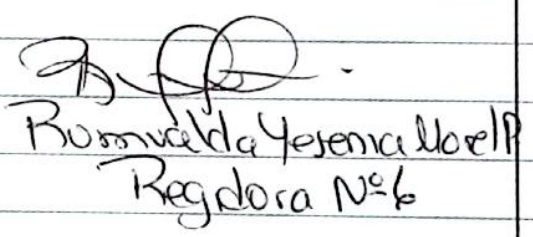 Romualda Yesenia Morel P
Regidora Nº 6